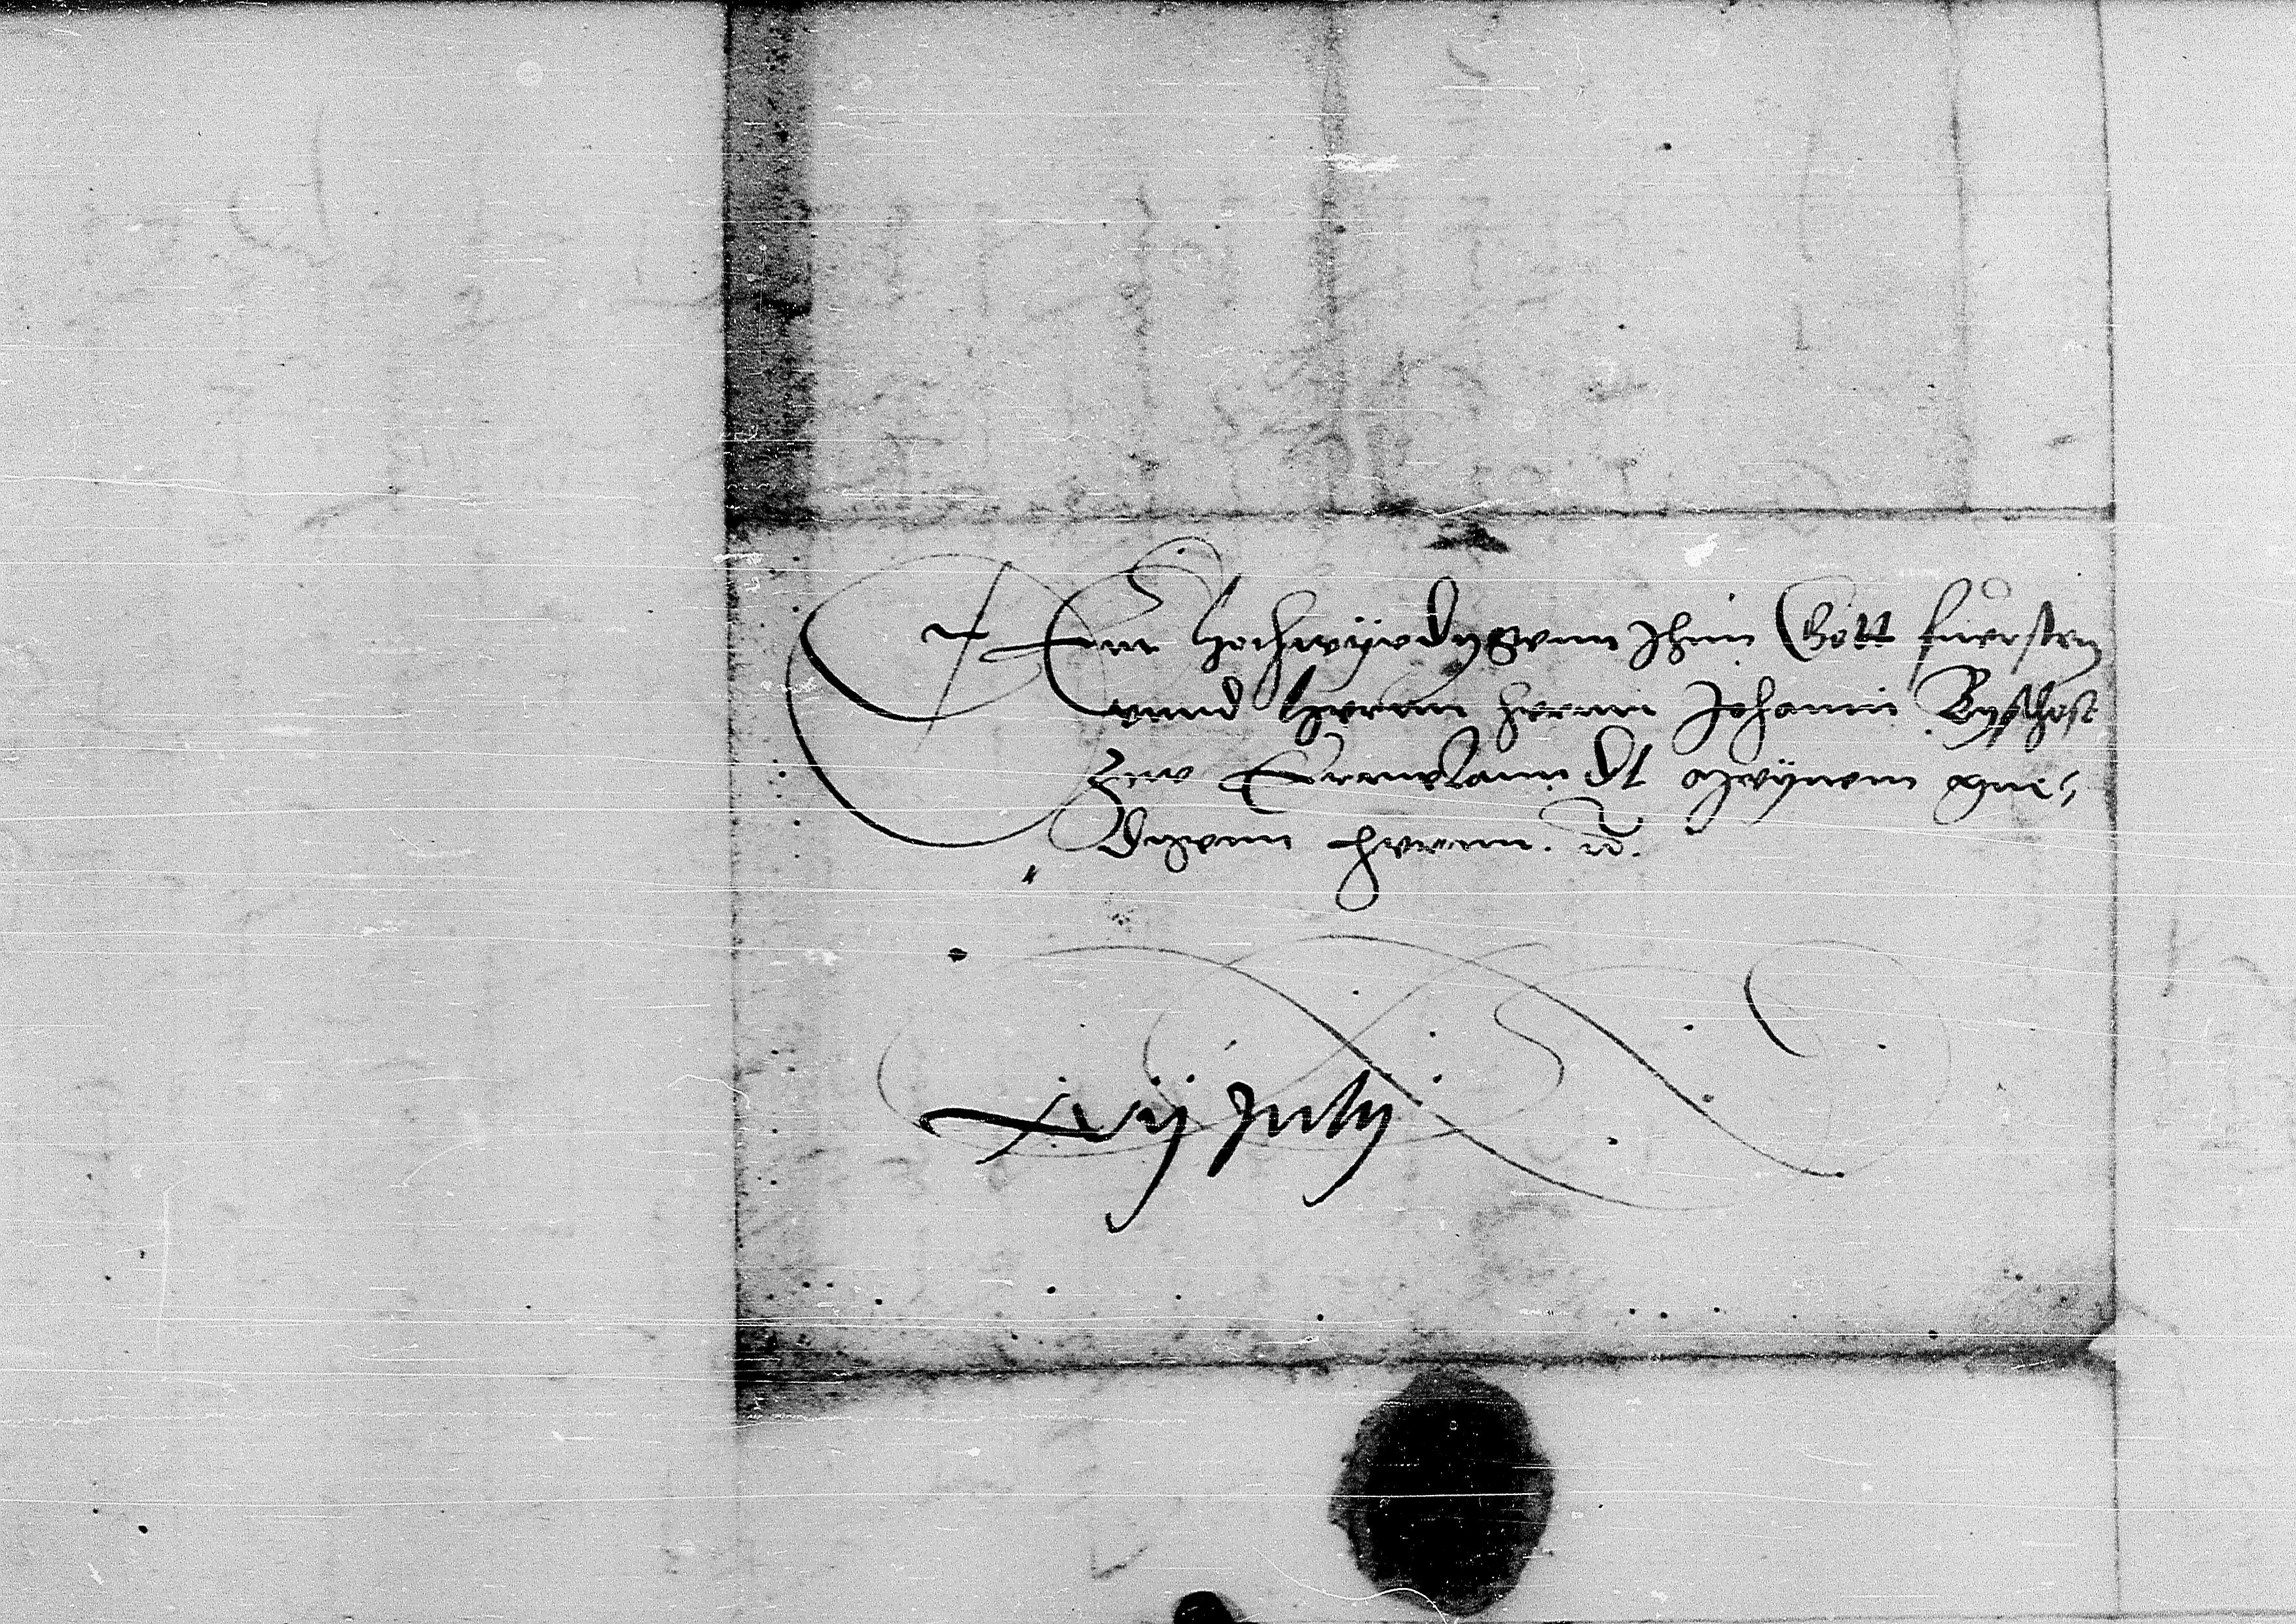 Dem hochwyrdygenn Jhnn Gott fuersten
vnnd herrnn hernn Johannn Byschoff
zw Ermelanndt meynem gne,,
dygenn herrnn. etc.
xvij July